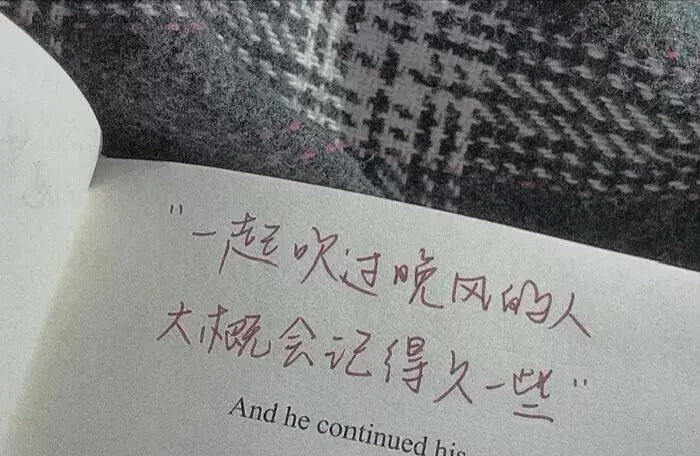 "一起吹过晚风的人
大概会记得久一些"
And he continued his